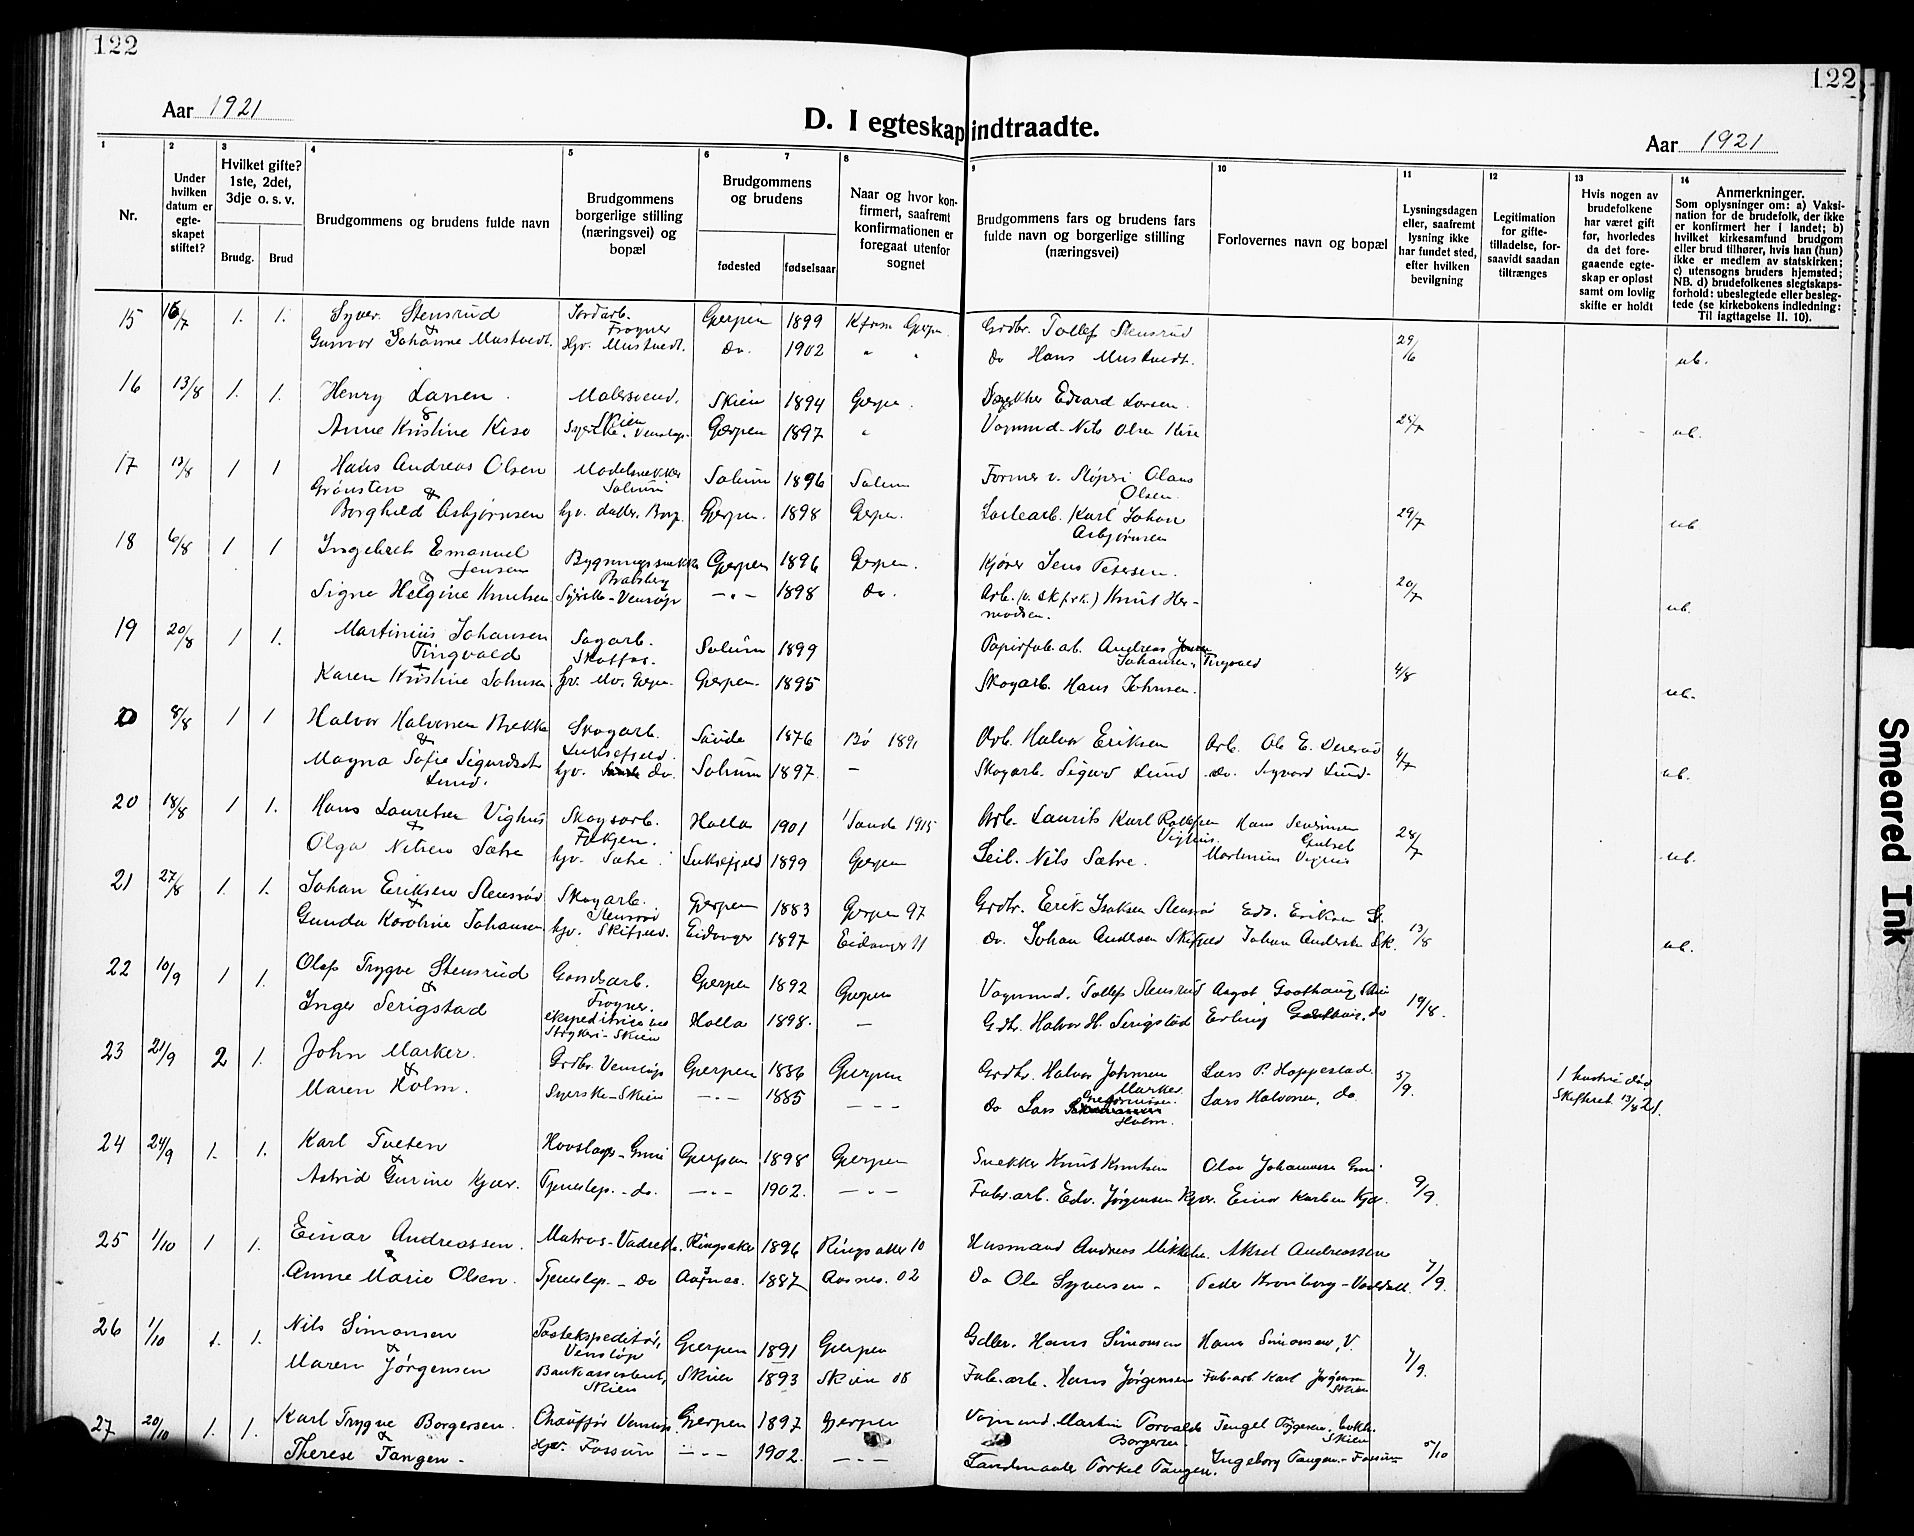 122
122
Aar 1921
D. I egteskap indtraadte.
Aar 1921
1
Nr.
2
Under hvilken datum er egte-skapet stiftet?
3
Hvilket gifte? 1ste, 2det, 3dje o. s. v.
Brudg. Brud
4
Brudgommens og brudens fulde navn
5
Brudgommens borgerlige stilling (næringsvei) og bopæl
6 7
Brudgommens og brudens
fødested fødselsaar
8
Naar og hvor kon-firmert, saafremt konfirmationen er foregaat utenfor sognet
9
Brudgommens fars og brudens fars fulde navn og borgerlige stilling (næringsvei)
10
Forlovernes navn og bopæl
11
Lysningsdagen eller, saafremt lysning ikke har fundet sted, efter hvilken bevilgning
12
Legitimation for gifte-tilladelse, for-saavidt saadan tiltrænges
13
Hvis nogen av brudefolkene har været gift før, hvorledes da det fore-gaaende egte-skap er opløst samt om lovlig skifte er holdt
14
Anmerkninger.
Som oplysninger om: a) Vaksi-nation for de brudefolk, der ikke er konfirmert her i landet; b) hvilket kirkesamfund brudgom eller brud tilhører, hvis han (hun) ikke er medlem av statskirken; c) utensogns bruders hjemsted; NB. d) brudefolkenes slegtskaps-forhold: ubeslegtede eller besleg-tede (se kirkebokens indledning: Til iagttagelse II. 10).
15 16/7 1. 1. Syver Stensrud Jordarb. Frogner Gjerpen 1899 Grdbr. Tollef Stensrud 29/6
&
Gunvor Johanne Mustvedt. Hjv. Mustvedt. Do. 1902 " " do Hans Mustvedt. ub.
16 13/8 1. 1. Henry Larsen. Malersvend, Skien Skien 1894 Gjerpen. Edvard Larsen.
&
Anne Kristine Kise Syerske, Venstøp. Gjerpen 1897 " Vognmd. Nils Olsen Kise 25/7 ub.
17 13/8 1 1 Hans Andreas Olsen Modelsnekker Solum Solum 1896 Solum Former v. Støperi Olaus Olsen.
Grønsten &
Borghild Asbjørnsen hjv. datter. Borg. Gjerpen. 1898 Gjerpen. Lastearb. Karl Johan Asbjørnsen 29/7 ub
18 6/8 1 1 Ingebret Emanuel Jensen Bygningssnekker Bratsberg Gjerpen 1896 Gjerpen. Kjører Jens Petersen.
&
Signe Helgine Knutsen Syerske - Venstøp — " — 1898 do. Arb. (v. Skfsk.) Knut Her-modsen. 20/7 ub.
19 20/8 1 1. Martinius Johansen Tingvald Sagarb. Skotfos. Solum 1899 Papirfab.arb. Andreas Johansen Tingvald
&
Karen Kristine Johnsen hjv. Gjerpen. 1895 Skogarb. Hans Johnsen. 4/8 ub.
20 8/8 1 1 Halvor Halvorsen Brekke Skogarb. Luksefjeld. Saude 1876 Bø 1891 Arb. Halvor Eriksen Arb. Ole E.
&
Magna Sofie Sigurdsdt. Lund. hjv. do. Solum 1897. — Skogarb. Sigurd Lund do. Sigvard Lund. 4/7 ub.
20 18/8 1 1. Hans Lauritsen Vighus Skogsarb. Holla 1901 Saude 1915 Arb. Laurits Karl Vighus. Hans
&
Olga Nilsen Sætre hjv. Sætre. Luksefjeld 1899 Gjerpen Leil. Nils Sætre. Martinius Vighus 28/7 ub.
21 27/8 1. 1. Johan Eriksen Stensrød Skogarb. Stensrød Gjerpen 1883 Gjerpen 97 Grdbr. Erik Isaksen Stensrød Edv. Eriksen St.
&
Gunda Karoline Johansen hjv. Skifjeld. Eidanger 1897 Eidanger 11 do. Johan Andersen Skifjeld Johan Andersen Sk. 13/8 ub.
22 10/9 1 1. Olaf Trygve Stensrud Gaardsarb. Frogner. Gjerpen 1892 Gjerpen Vognmd. Tollef Stensrud Aagot Skien
&
Inger Serigstad ekspeditrice ved Strykeri - Skien Holla 1898. — Gdbr. Halvor H. Serigstad Erling do 19/8.
23 21/9 2 1. John Marker. Grdbr. Venstøp Gjerpen 1886 Gjerpen Grdbr. Halvor Johnsen Marker Lars P. Hoppestad.
&
Maren Holm. Syerske - Skien — " — 1885 — — — do Lars Gregoriussen Holm. Lars Halvorsen, do. 5/9. 1 hustru død Skifteret. 13/8 21.
24 24/9 1. 1. Karl Tveten Hovslager - Gjerpen 1898 Gjerpen Snekker Knut Knutsen Olav Johannessen
&
Astrid Gurine Kjær. Tjenestep. - do. — " — 1902. — " — Fabr.arb. Edv. Jørgensen Kjær. Einar Karlsen Kjær. 9/9.
25 1/10 1 1. Einar Andreassen. Matros - Ringsaker 1896 Ringsaker 10 Husmand Andreas Mikkelsen. Aksel Andreassen
&
Anne Marie Olsen. Tjenestep. - do Aasnes. 1887 Aasnes. 02 do Ole Syversen - Peder Kronborg - 7/9.
26 1/10 1. 1. Nils Simonsen Postekspeditør, Venstøp Gjerpen 1891 Gjerpen Gdbr. Hans Simonsen Hans Simonsen, V.
&
Maren Jørgensen Bankassistent, Skien Skien 1893 Skien 08 Fabr.arb. Hans Jørgensen Fabr.arb. Karl Jørgensen Skien 7/9.
27 20/10 1. 1. Karl Trygve Borgersen. Chauffør Venstøp Gjerpen 1897 Gjerpen Vognmd. Martin Torvald Borgersen. Skien
&
Therese Tangen - Hjv. Fossum — " — 1902. — " — Landmaaler Torkel Tangen. Ingeborg Tangen - Fossum 5/10
Smeared Ink